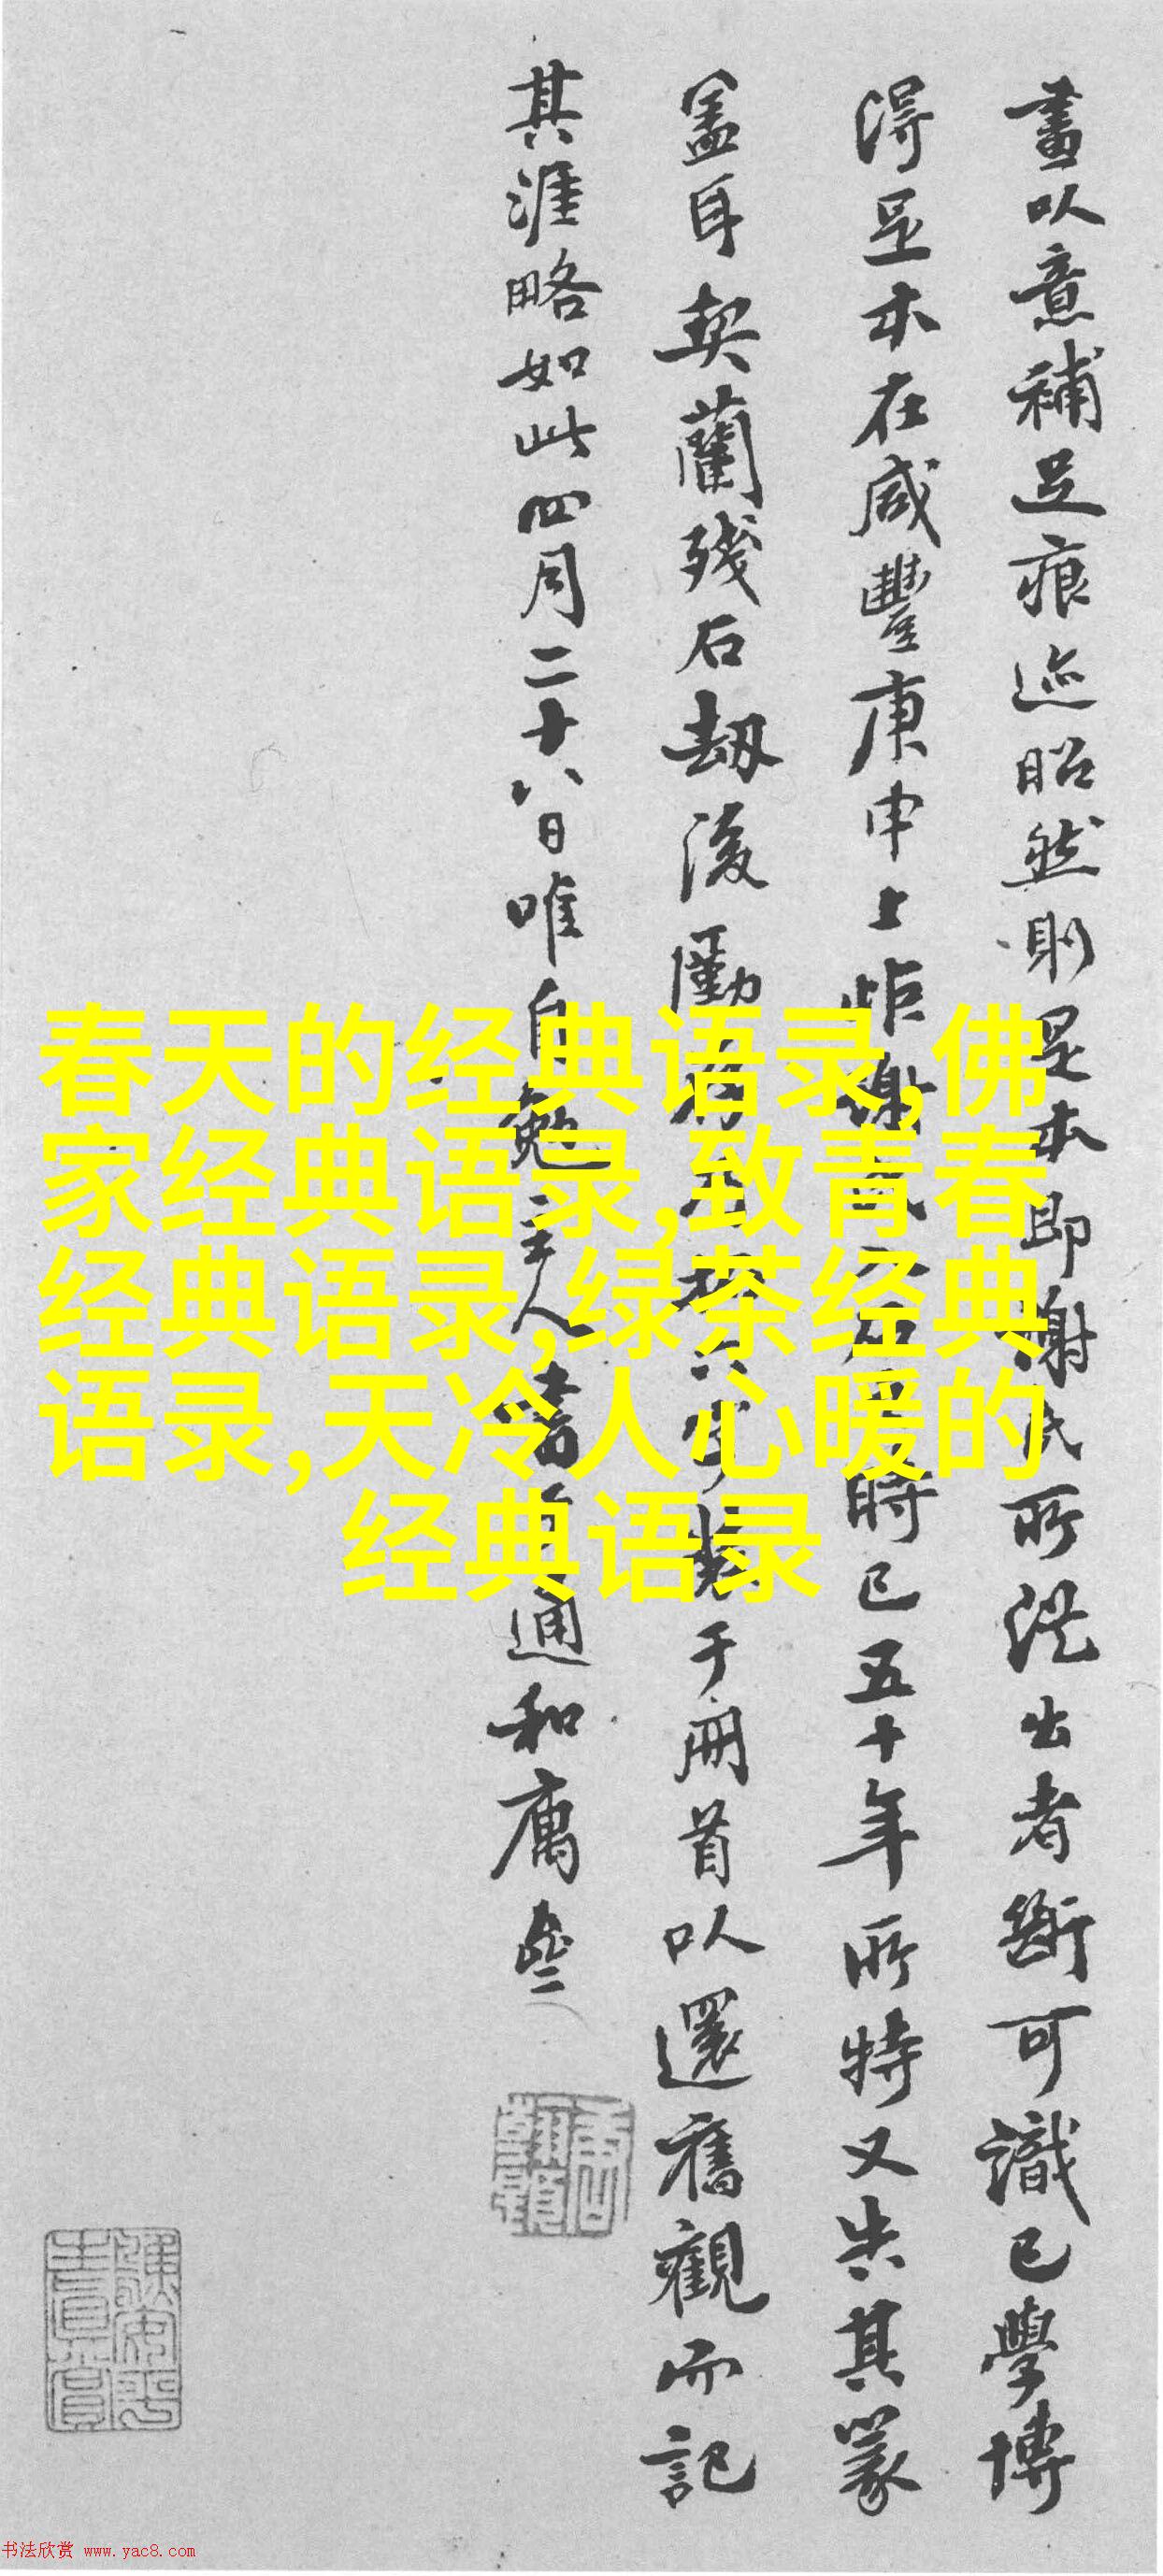 畫以意補足痕迹昭然則是本即謝氏所從出者斷可識已學博
得足本在咸豐庚申上距謝時已五十年所特又失其篆
盖耳契蘭殘石劫後于冊首以還舊觀而記
其涯略如此四月二十八日唯自勉主人書通和
春天的经典语录,佛
家经典语录,致青春
经典语录,绿茶经典
语录,天冷人心暖的
经典语录
书法欣赏 www.yac8.com